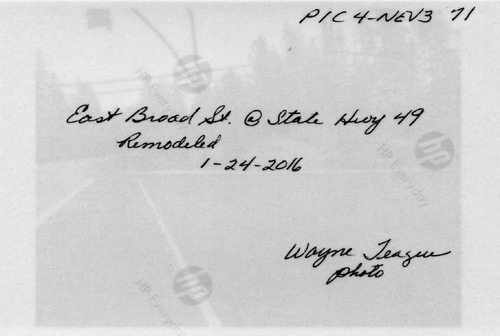 PIC 4-NEV3 71
East Broad St. @ State Hwy 49
Remodeled
1-24-2016
Wayne Teague
photo
hp
HP Everyday
hp
HP Everyday
hp
HP Everyday